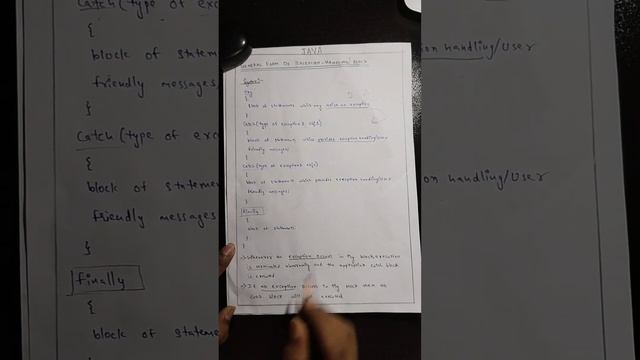 JAVA
GENERAL FORM OF EXCEPTION-HANDLING BLOCK
Syntax:-
Try
{
block of statements which may raise an exception
}
Catch (type of exception1 obj1)
{
block of statements which provides exception handling/user
friendly messages
}
Catch (type of exception2 obj2)
{
block of statements which provides exception handling/user
friendly messages
}
finally
{
block of statements
}
}
=> Whenever an exception occurs in try block, execution
is terminated abnormally and the appropriate catch block
is executed
=> If no exception occurs in try block then no
catch block will executed
Catch (type of exc
{
block of statem
friendly messages
}
Catch (type of exc
{
block of stateme
friendly messages
}
finally
{
block of stateme
on handling/user
on handling/User